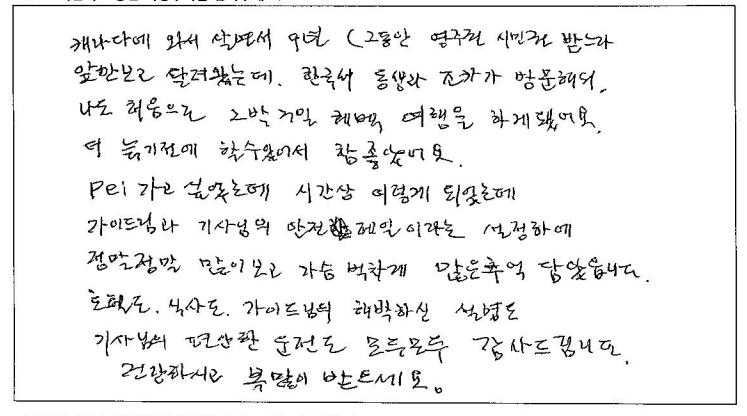 캐나다에 와서 살면서 9년 (그동안 영주권 시민권 받느라
앞만보고 달려왔는데. 한국서 동생과 조카가 방문해서,
나도 처음으로 2박 3일 퀘백 여행을 하게됐어요.
더 늙기전에 할수있어서 참 좋았어요.
PEI 가고 싶었는데 시간상 이렇게 되었는데
가이드님과 기사님의 안전 제일이라는 설정하에
정말정말 많이보고 가슴 벅차게 많은추억 담았읍니다.
호텔도. 식사도. 가이드님의 해박하신 설명도
기사님의 편안한 운전도 모두모두 감사드립니다.
건강하시고 복많이 받으세요.